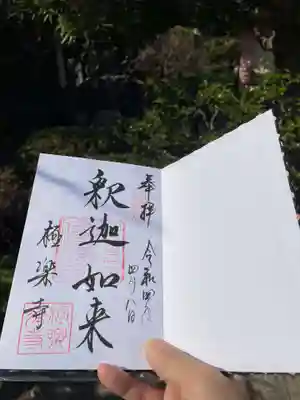 奉拝 令和四年
四月八日
釈迦如来
極楽寺